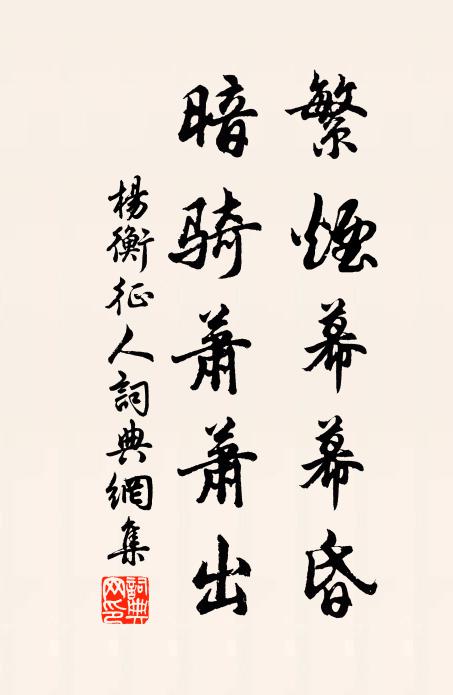 繁煙幕幕昏
暗騎蕭蕭出
楊衡征人詞典網集
詞典網印